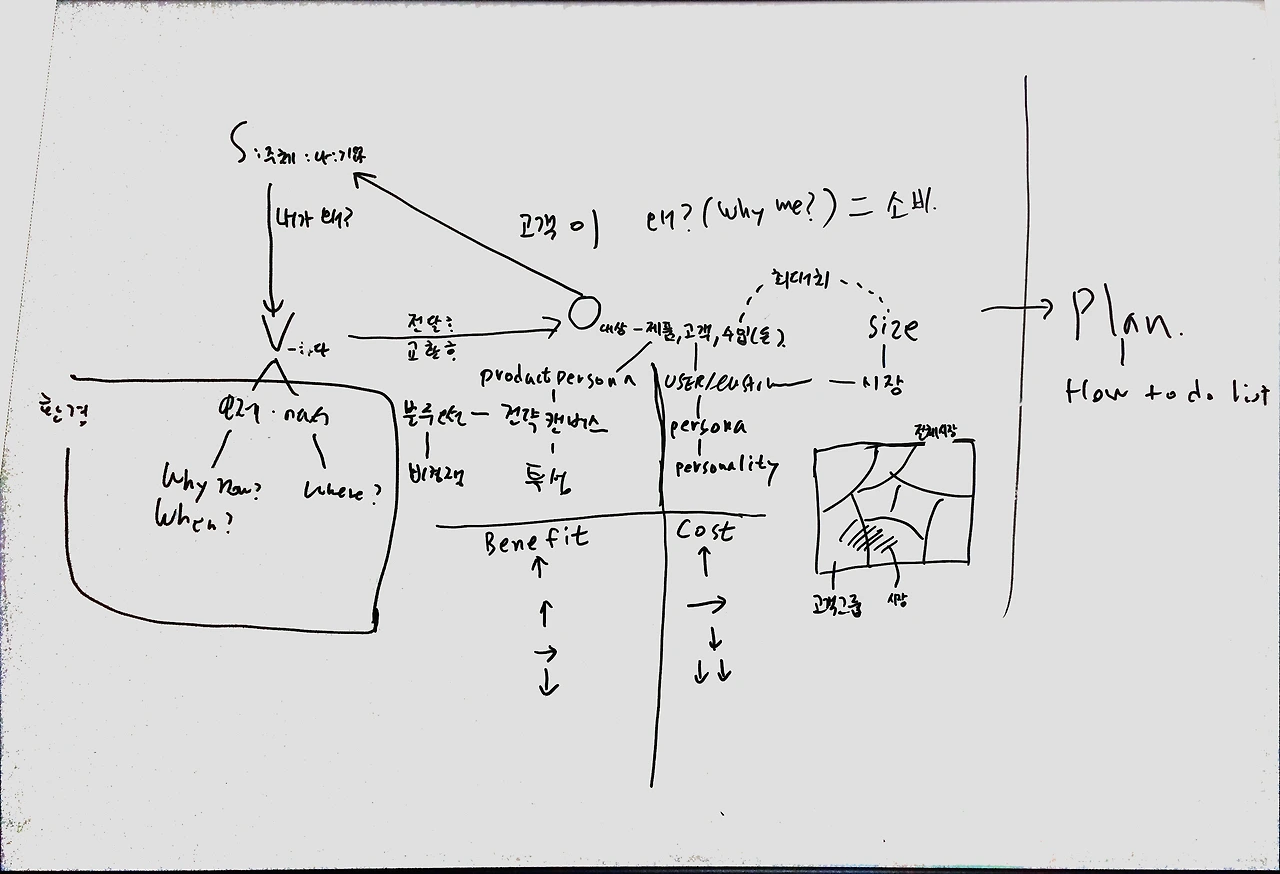 S:주체:나:기업
내가 왜?
고객이 왜?(why me?) = 소비.
최대치
전달;
교환;
V
O
대상-제품,고객,수입(돈).
size
Plan.
How to do list
product persona
USER/
시장
환경
전략 캔버스
persona
personality
특성
Why now?
When?
where?
전체시장
Benefit
Cost
고객그룹
시장